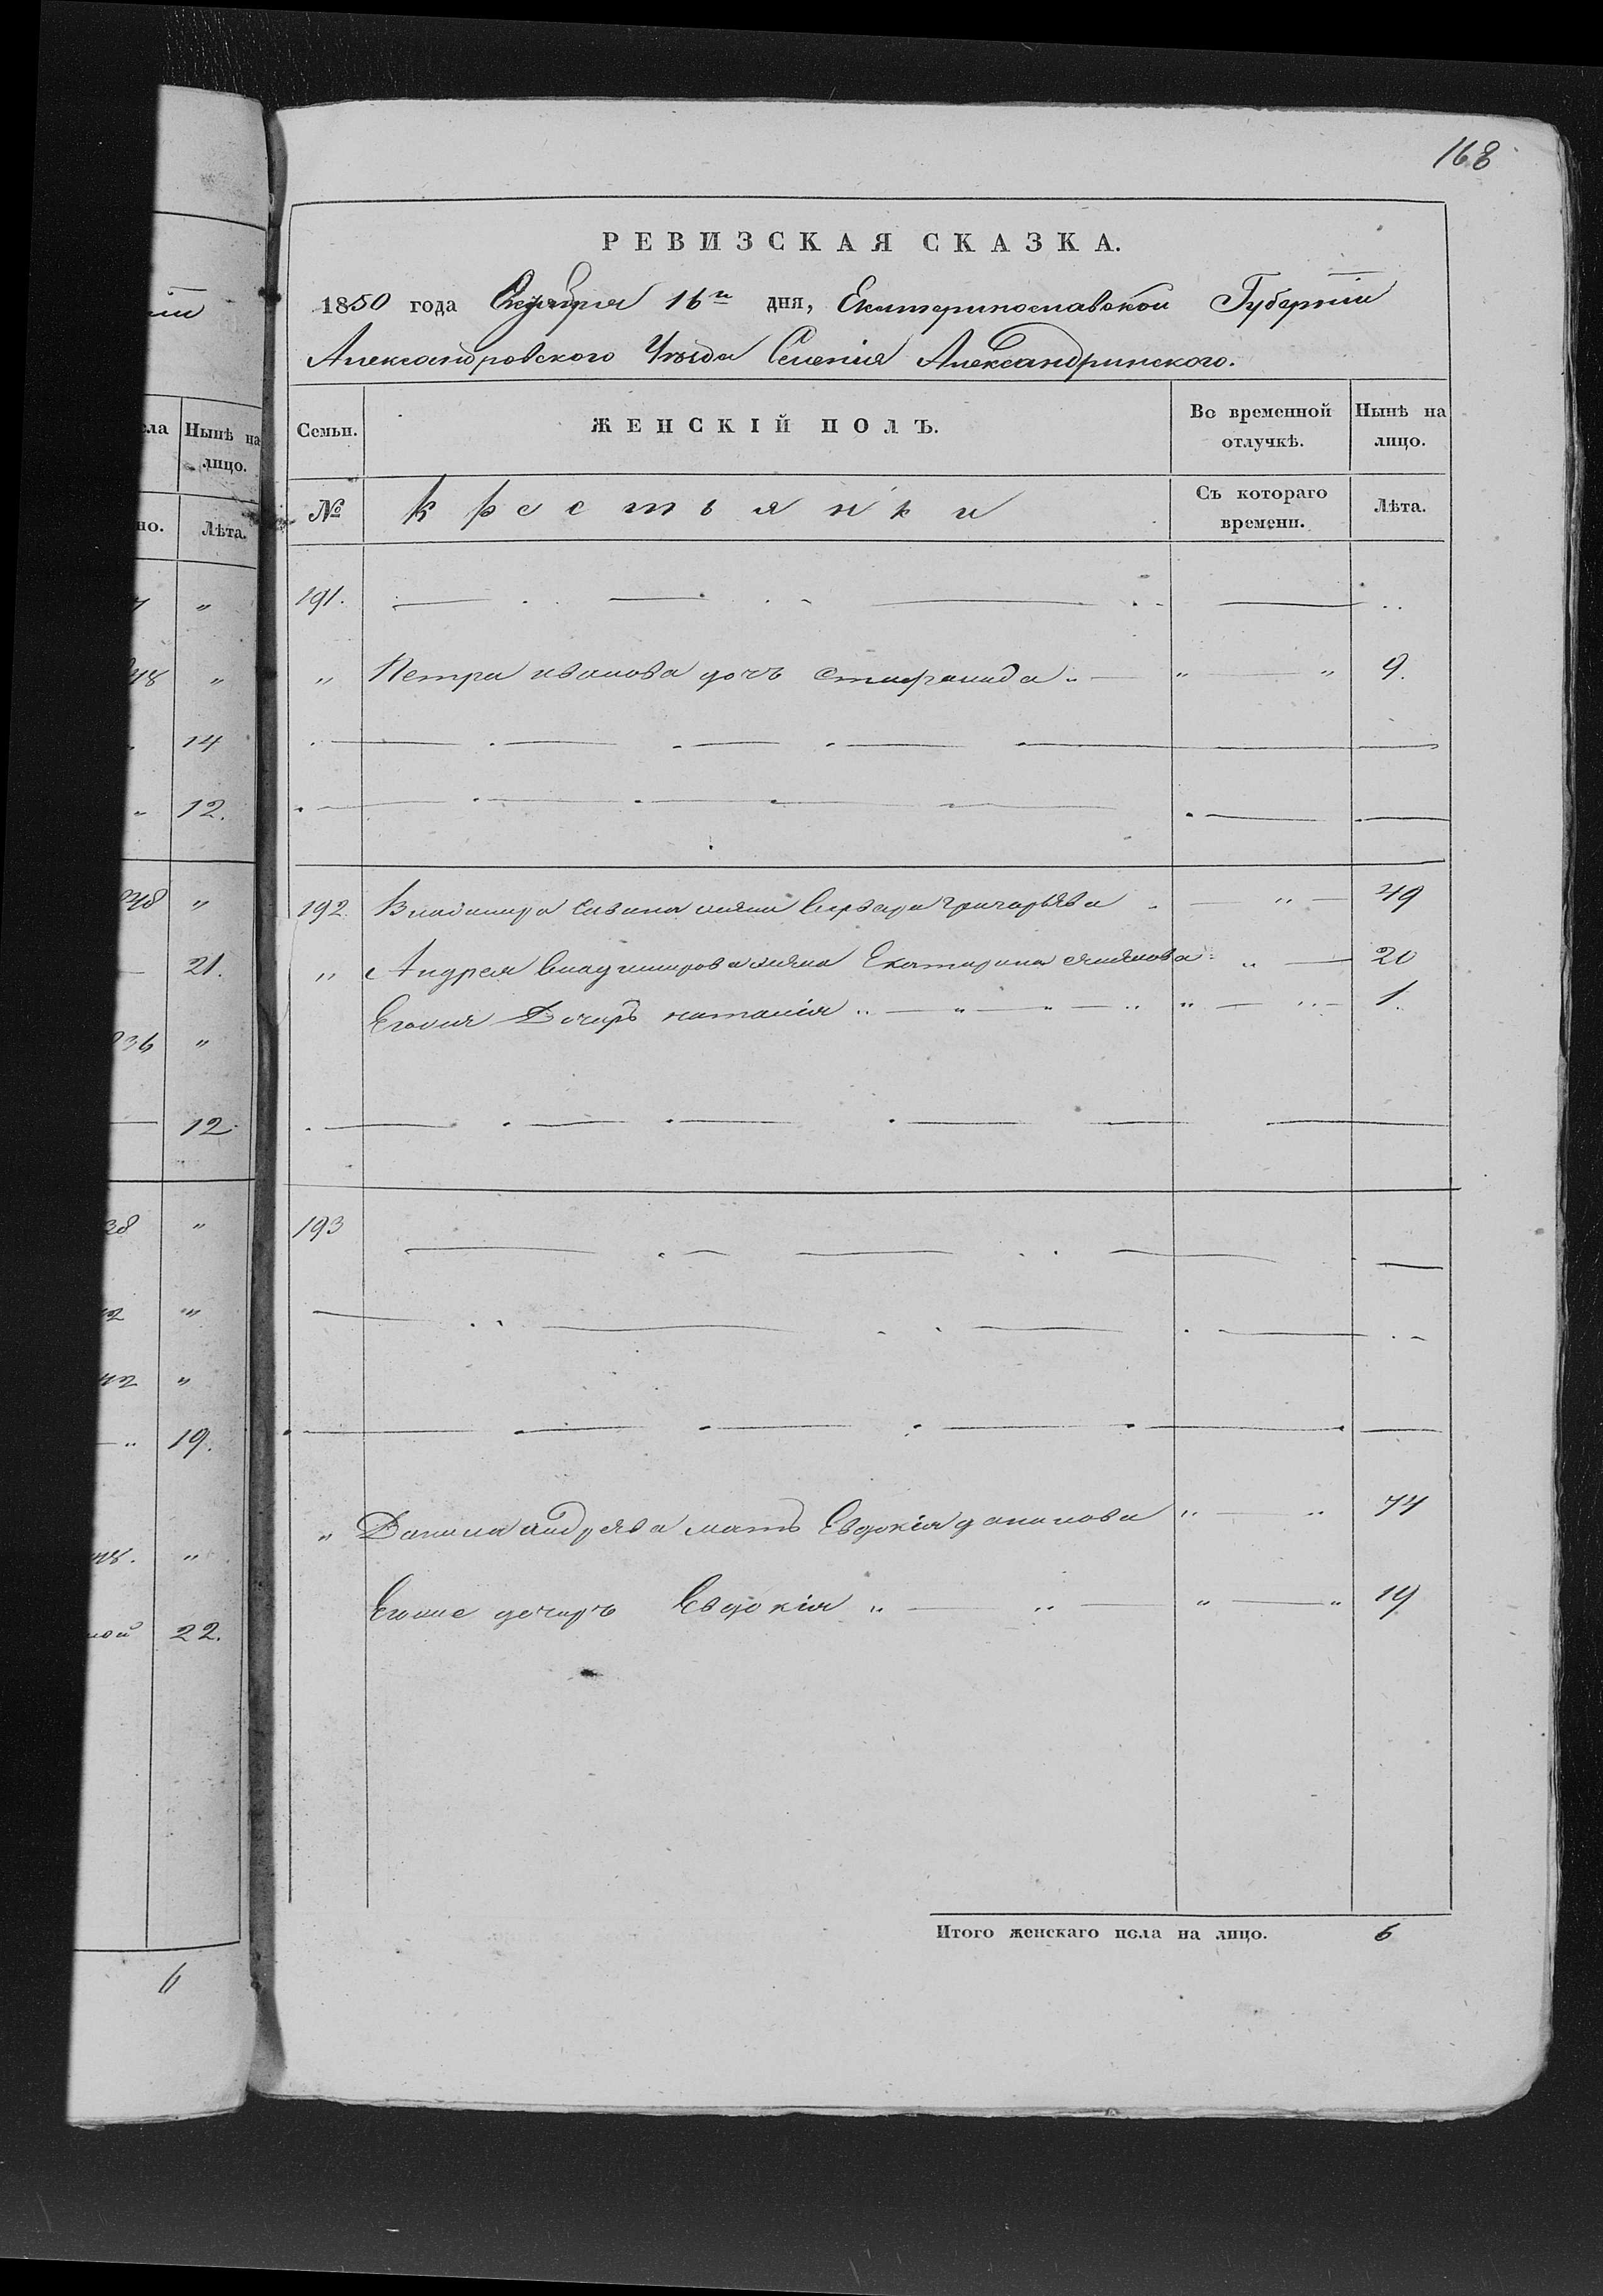 168
РЕВИЗСКАЯ СКАЗКА.
1850 года Октября 16го дня, Екатеринославской Губерніи
Александровского Уѣзда Селенія Александринского.
Семьи. ЖЕНСКІЙ ПОЛЪ. Во временной отлучкѣ. Нынѣ на лицо.
№ Крестьянки Съ котораго времени. Лѣта.
191.
„ Петра иванова дочь Стефанида „ — „ — „ 9.
192. Владимира Савина жена варвара григорьева — „ — 49
„ Андрея владимирова жена Екатирина 20
Егоже Дочерь наталія „ — „ — „ — „ „ — „ — 1.
193
„ Данила андрѣева мать Евдокія данилова „ — „ 74
Егоже дочерь Евдокія „ — „ — „ — „ 19
Итого женскаго пола на лицо. 6
ела Нынѣ на лицо.
но. Лѣта.
„
48 „
14
„ 12.
848 „
21.
836 „
12.
38 „
42 „
— „ 19.
48. „
ной 22.
6